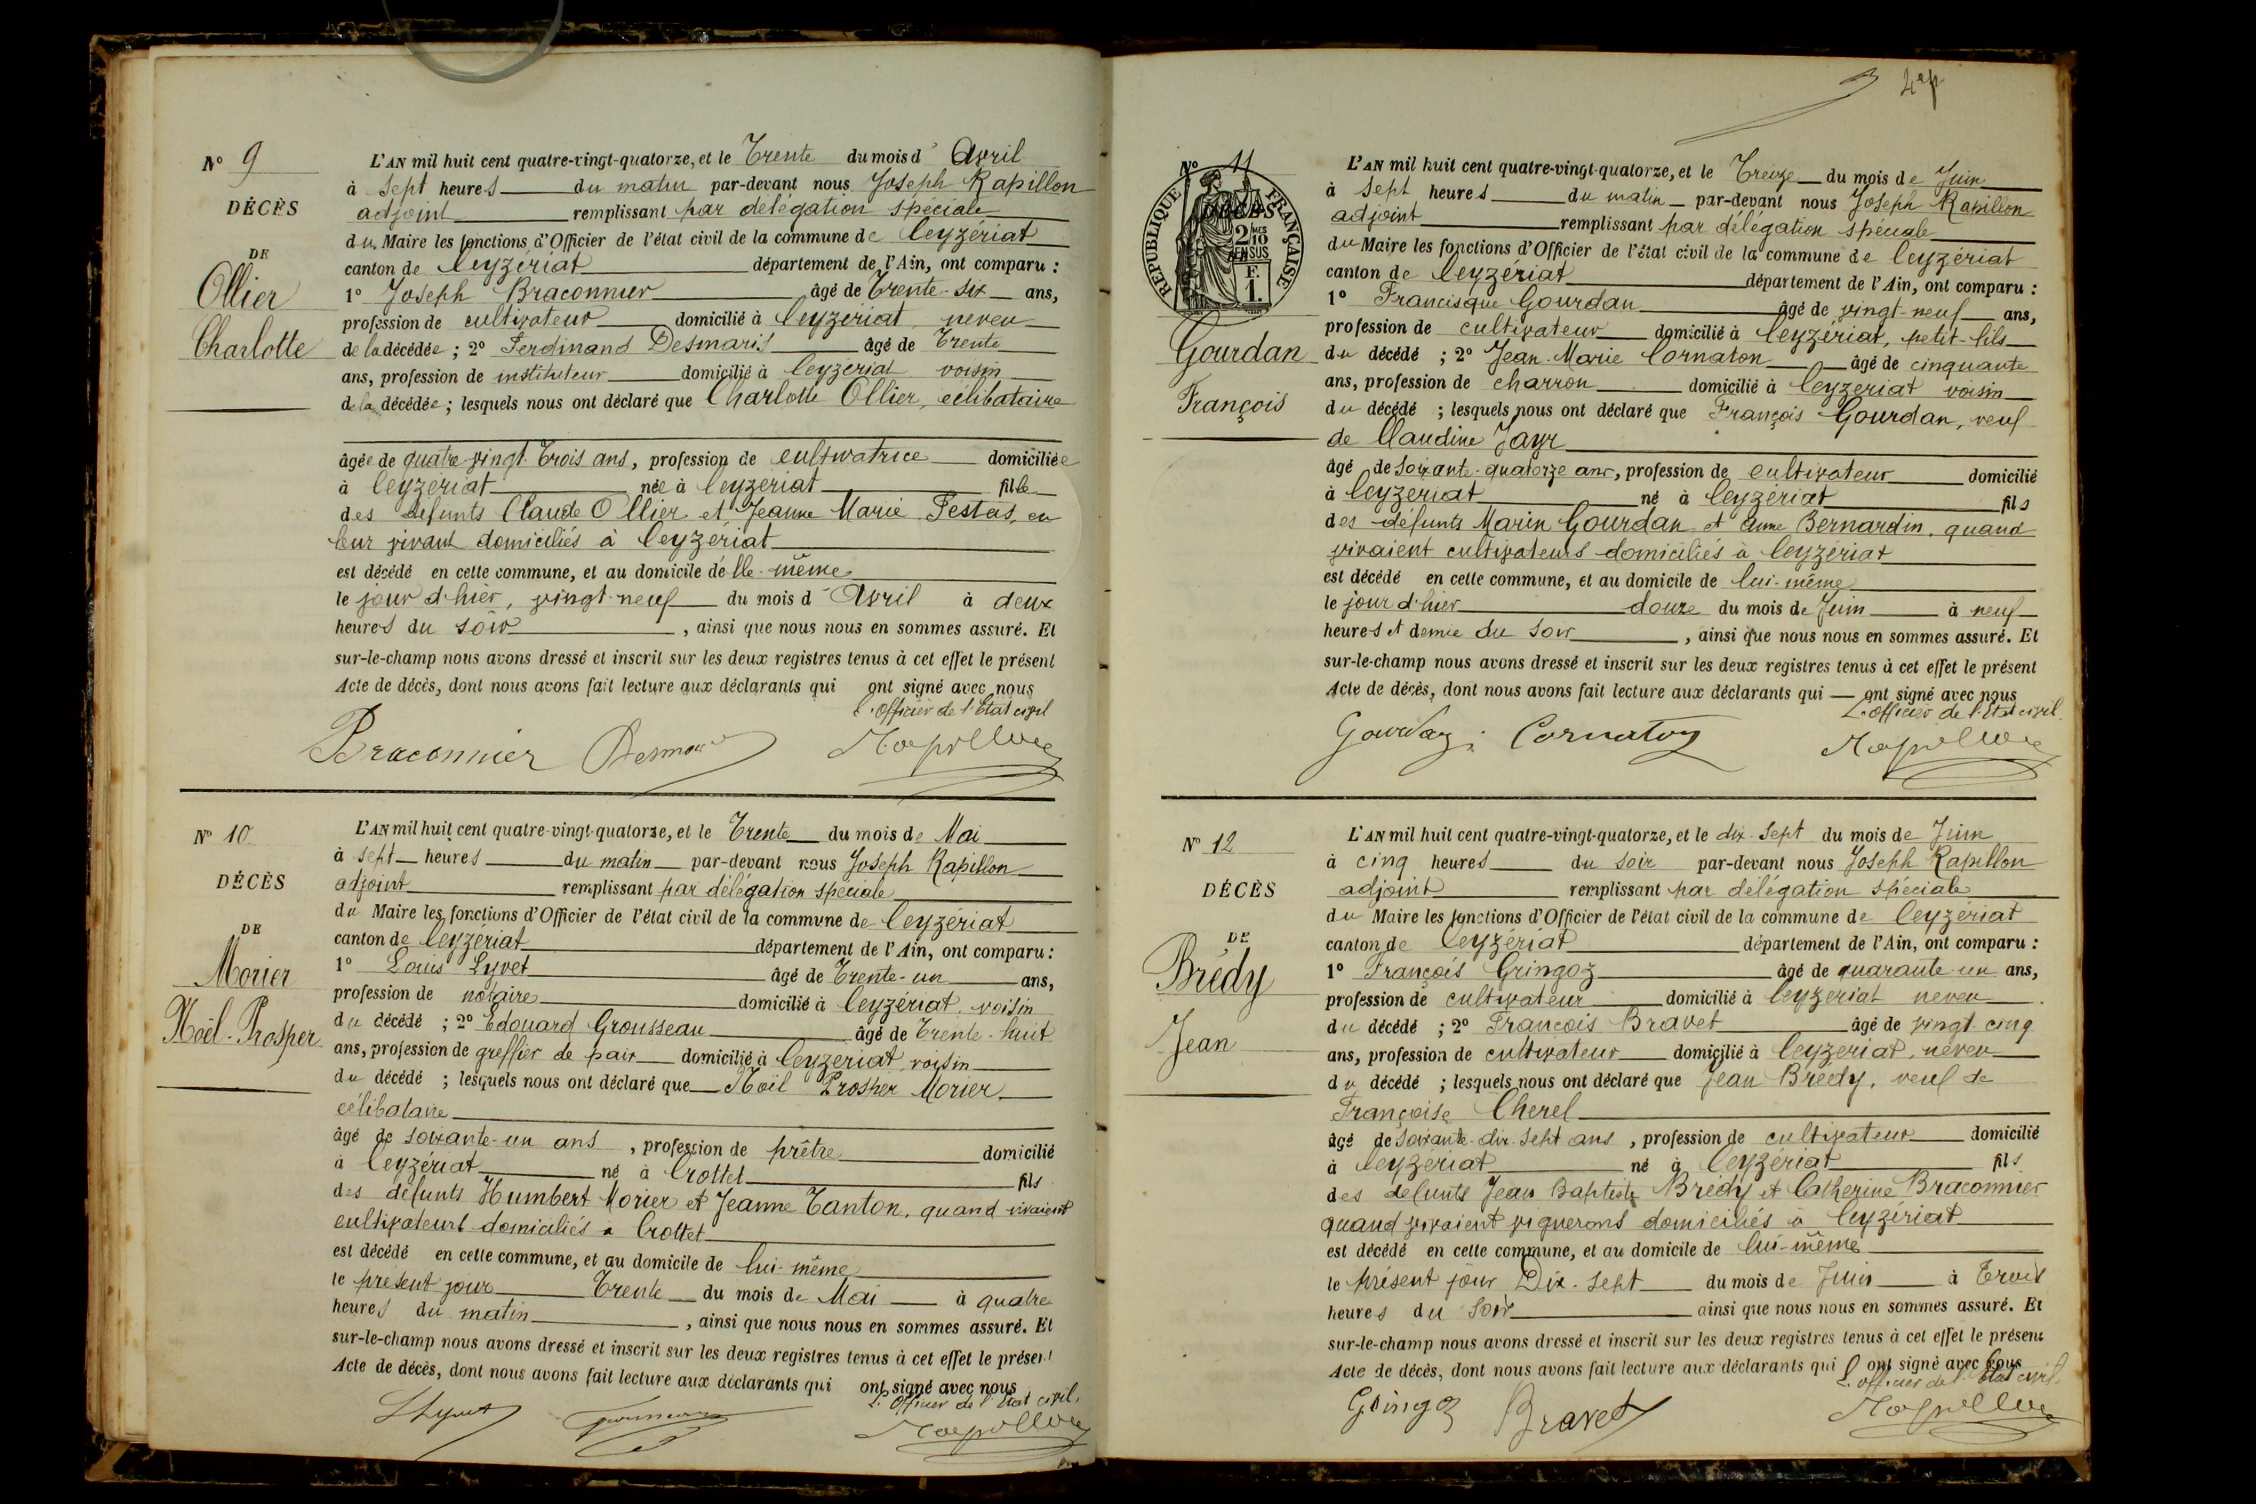 Nº 9
DÉCÈS
DE
Ollier
Charlotte
L'AN mil huit cent quatre-vingt-quatorze, et le Trente du mois d'Avril
à sept heures du matin par-devant nous Joseph Rapillon
adjoint remplissant par délégation spéciale
du Maire les fonctions d'Officier de l'état civil de la commune de Ceyzériat
canton de Ceyzériat département de l'Ain, ont comparu :
1º Joseph Braconnier âgé de Trente-six ans,
profession de cultivateur domicilié à Ceyzériat neveu
de la décédée ; 2º Ferdinand Desmaris âgé de Trente
ans, profession de instituteur domicilié à Ceyzériat voisin
de la décédée ; lesquels nous ont déclaré que Charlotte Ollier, célibataire
âgée de quatre-vingt-Trois ans, profession de cultivatrice domiciliée
à Ceyzériat née à Ceyzériat fille
des défunts Claude Ollier et Jeanne Marie Festas, en
leur vivant domiciliés à Ceyzériat
est décédé en cette commune, et au domicile de lle-même
le jour d'hier, vingt-neuf du mois d'Avril à deux
heures du soir, ainsi que nous nous en sommes assuré. Et
sur-le-champ nous avons dressé et inscrit sur les deux registres tenus à cet effet le présent
Acte de décès, dont nous avons fait lecture aux déclarants qui ont signé avec nous
L'officier de l'Etat civil
Braconnier Desmaris Rapillon
Nº 10
DÉCÈS
DE
Morier
Noël-Prosper
L'AN mil huit cent quatre-vingt-quatorze, et le Trente du mois de Mai
à sept heures du matin par-devant nous Joseph Rapillon
adjoint remplissant par délégation spéciale
du Maire les fonctions d'Officier de l'état civil de la commune de Ceyzériat
canton de Ceyzériat département de l'Ain, ont comparu :
1º Louis Lyvet âgé de Trente-un ans,
profession de notaire domicilié à Ceyzériat, voisin
du décédé ; 2º Edouard Grousseau âgé de Trente-huit
ans, profession de greffier de paix domicilié à Ceyzériat, voisin
du décédé ; lesquels nous ont déclaré que Noël Prosper Morier
célibataire
âgé de soixante-un ans, profession de prêtre domicilié
à Ceyzériat né à Crottet fils
des défunts Humbert Morier et Jeanne Tanton, quand vivaient
cultivateurs domiciliés à Crottet
est décédé en cette commune, et au domicile de lui-même
le présent jour Trente du mois de Mai à quatre
heures du matin, ainsi que nous nous en sommes assuré. Et
sur-le-champ nous avons dressé et inscrit sur les deux registres tenus à cet effet le présent
Acte de décès, dont nous avons fait lecture aux déclarants qui ont signé avec nous
L'officier de l'Etat civil.
LLyvet Rapillon
Nº 11
RÉPUBLIQUE FRANÇAISE
2/10 MES EN SUS
F. 1.
DÉCÈS
Gourdan
François
L'AN mil huit cent quatre-vingt-quatorze, et le Treize du mois de Juin
à sept heures du matin par-devant nous Joseph Rapillon
adjoint remplissant par délégation spéciale
du Maire les fonctions d'Officier de l'état civil de la commune de Ceyzériat
canton de Ceyzériat département de l'Ain, ont comparu :
1º Francisque Gourdan âgé de vingt-neuf ans,
profession de cultivateur domicilié à Ceyzériat, petit-fils
du décédé ; 2º Jean-Marie Cornaton âgé de cinquante
ans, profession de charron domicilié à Ceyzériat voisin
du décédé ; lesquels nous ont déclaré que François Gourdan, veuf
de Claudine Jayr
âgé de soixante-quatorze ans, profession de cultivateur domicilié
à Ceyzériat né à Ceyzériat fils
des défunts Marin Gourdan et Anne Bernardin, quand
vivaient cultivateurs domiciliés à Ceyzériat
est décédé en cette commune, et au domicile de lui-même
le jour d'hier douze du mois de Juin à neuf
heures et demie du soir, ainsi que nous nous en sommes assuré. Et
sur-le-champ nous avons dressé et inscrit sur les deux registres tenus à cet effet le présent
Acte de décès, dont nous avons fait lecture aux déclarants qui ont signé avec nous
L'officier de l'Etat civil.
Gourdan Cornaton Rapillon
Nº 12
DÉCÈS
DE
Brédy
Jean
L'AN mil huit cent quatre-vingt-quatorze, et le dix-sept du mois de Juin
à cinq heures du soir par-devant nous Joseph Rapillon
adjoint remplissant par délégation spéciale
du Maire les fonctions d'Officier de l'état civil de la commune de Ceyzériat
canton de Ceyzériat département de l'Ain, ont comparu :
1º François Gringoz âgé de quarante-un ans,
profession de cultivateur domicilié à Ceyzériat neveu
du décédé ; 2º François Bravet âgé de vingt-cinq
ans, profession de cultivateur domicilié à Ceyzériat, neveu
du décédé ; lesquels nous ont déclaré que Jean Brédy, veuf de
Françoise Cherel
âgé de soixante-dix-sept ans, profession de cultivateur domicilié
à Ceyzériat né à Ceyzériat fils
des défunts Jean Baptiste Brédy et Catherine Braconnier
quand vivaient vignerons domiciliés à Ceyzériat
est décédé en cette commune, et au domicile de lui-même
le présent jour Dix-sept du mois de Juin à Trois
heures du soir ainsi que nous nous en sommes assuré. Et
sur-le-champ nous avons dressé et inscrit sur les deux registres tenus à cet effet le présent
Acte de décès, dont nous avons fait lecture aux déclarants qui ont signé avec nous
L'officier de l'Etat civil.
Gringoz Bravet Rapillon